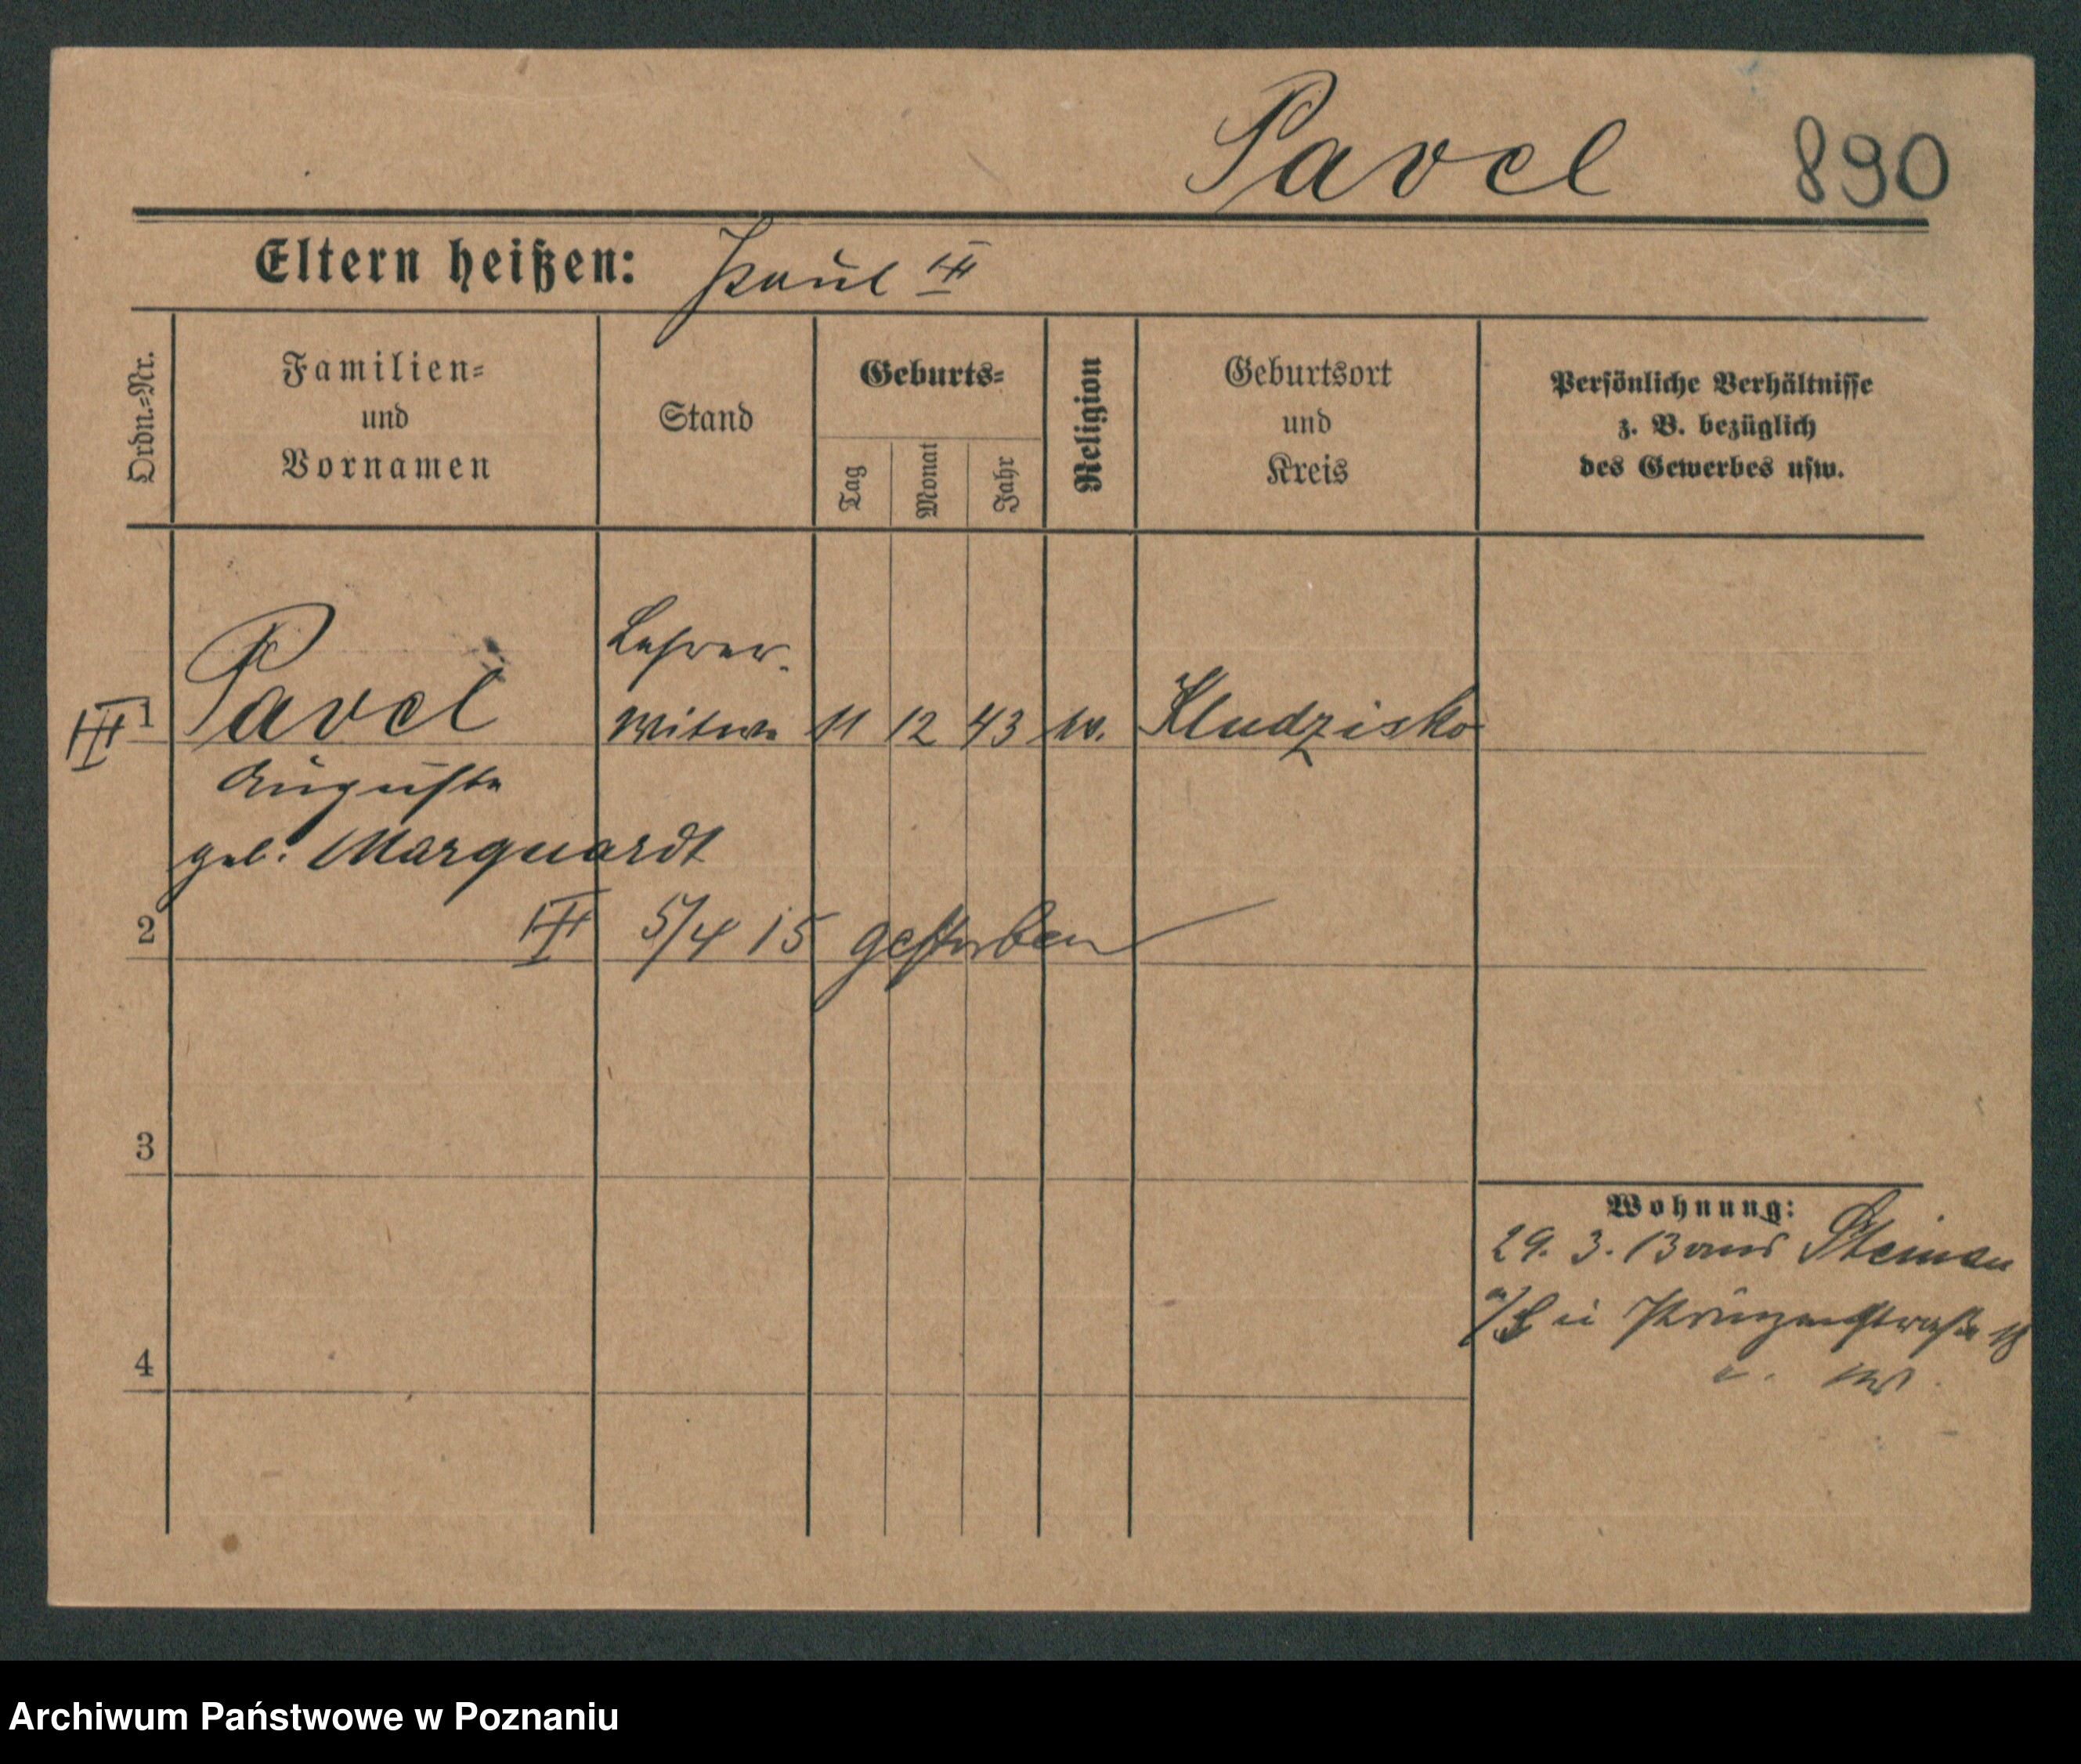 Pavel 890
Eltern heißen: Paul III
Ordn.-Nr.
Familien-
und
Vornamen
Stand
Geburts-
Tag
Monat
Jahr
Religion
Geburtsort
und
Kreis
Persönliche Verhältnisse
z. B. bezüglich
des Gewerbes usw.
Lehrer-
III 1 Pavel Witwe 11 12 43 ev. Kludzisko
Auguste
geb. Marquardt
2 III 5/4 15 gestorben
3
Wohnung:
29. 3. 13 aus Steinau
a/ in Prinzenstraße 18
4
Archiwum Państwowe w Poznaniu